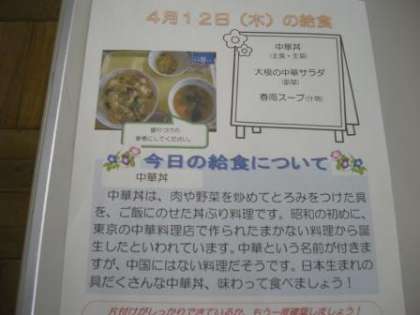 4月12日（木）の給食
中華丼
（主食・主菜）
大根の中華サラダ
（副菜）
春雨スープ（汁物）
盛りつけの
参考にしてください。
今日の給食について
中華丼
中華丼は、肉や野菜を炒めてとろみをつけた具
を、ご飯にのせた丼ぶり料理です。昭和の初めに、
東京の中華料理店で作られたまかない料理から誕
生したといわれています。中華という名前が付きま
すが、中国にはない料理だそうです。日本生まれの
具だくさんな中華丼、味わって食べましょう！
片付けがしっかりできているか、もう一度確認しましょう！